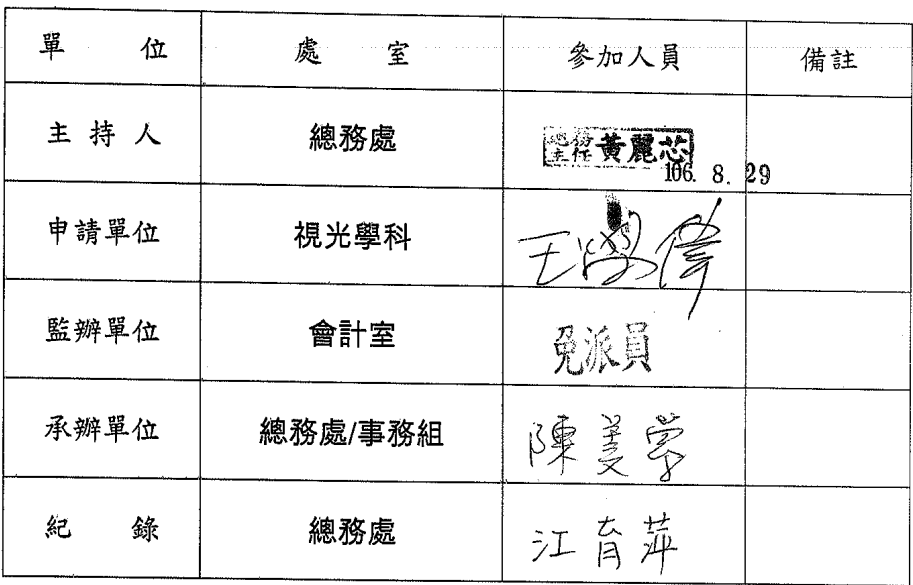 單 位 處 室 參加人員 備註
主持人 總務處 總務主任 黃麗芯
106. 8. 29
申請單位 視光學科 王
監辦單位 會計室 免派員
承辦單位 總務處/事務組 陳美
紀錄 總務處 江育萍